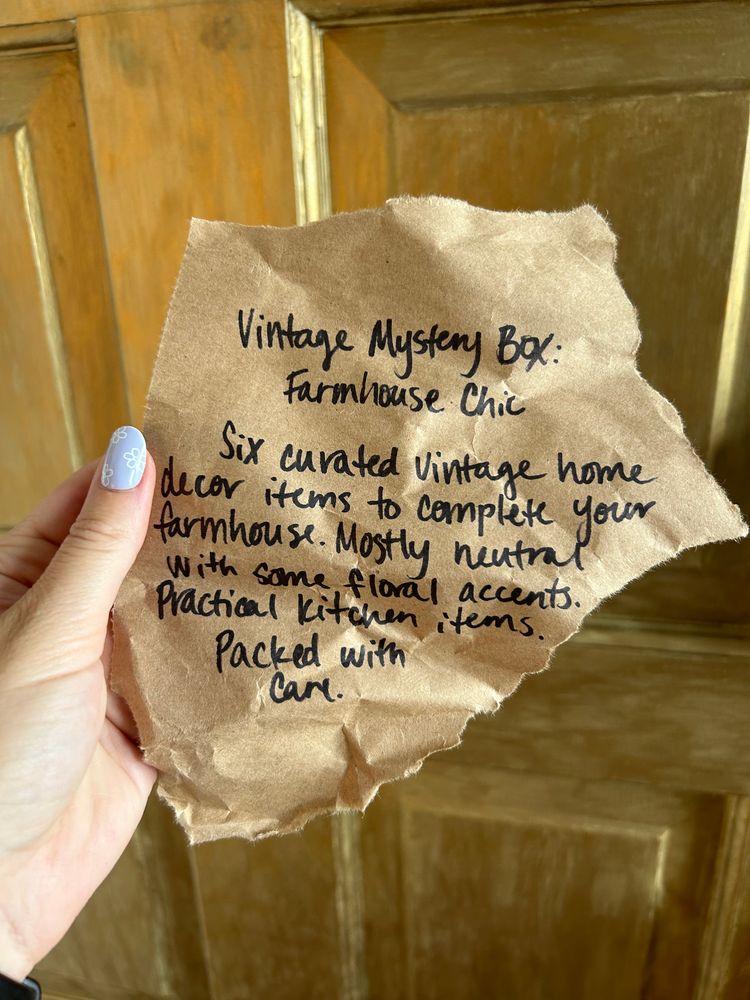 Vintage Mystery Box:
Farmhouse Chic
Six curated vintage home
decor items to complete your
farmhouse. Mostly neutral
with some floral accents.
Practical kitchen items.
Packed with
care.